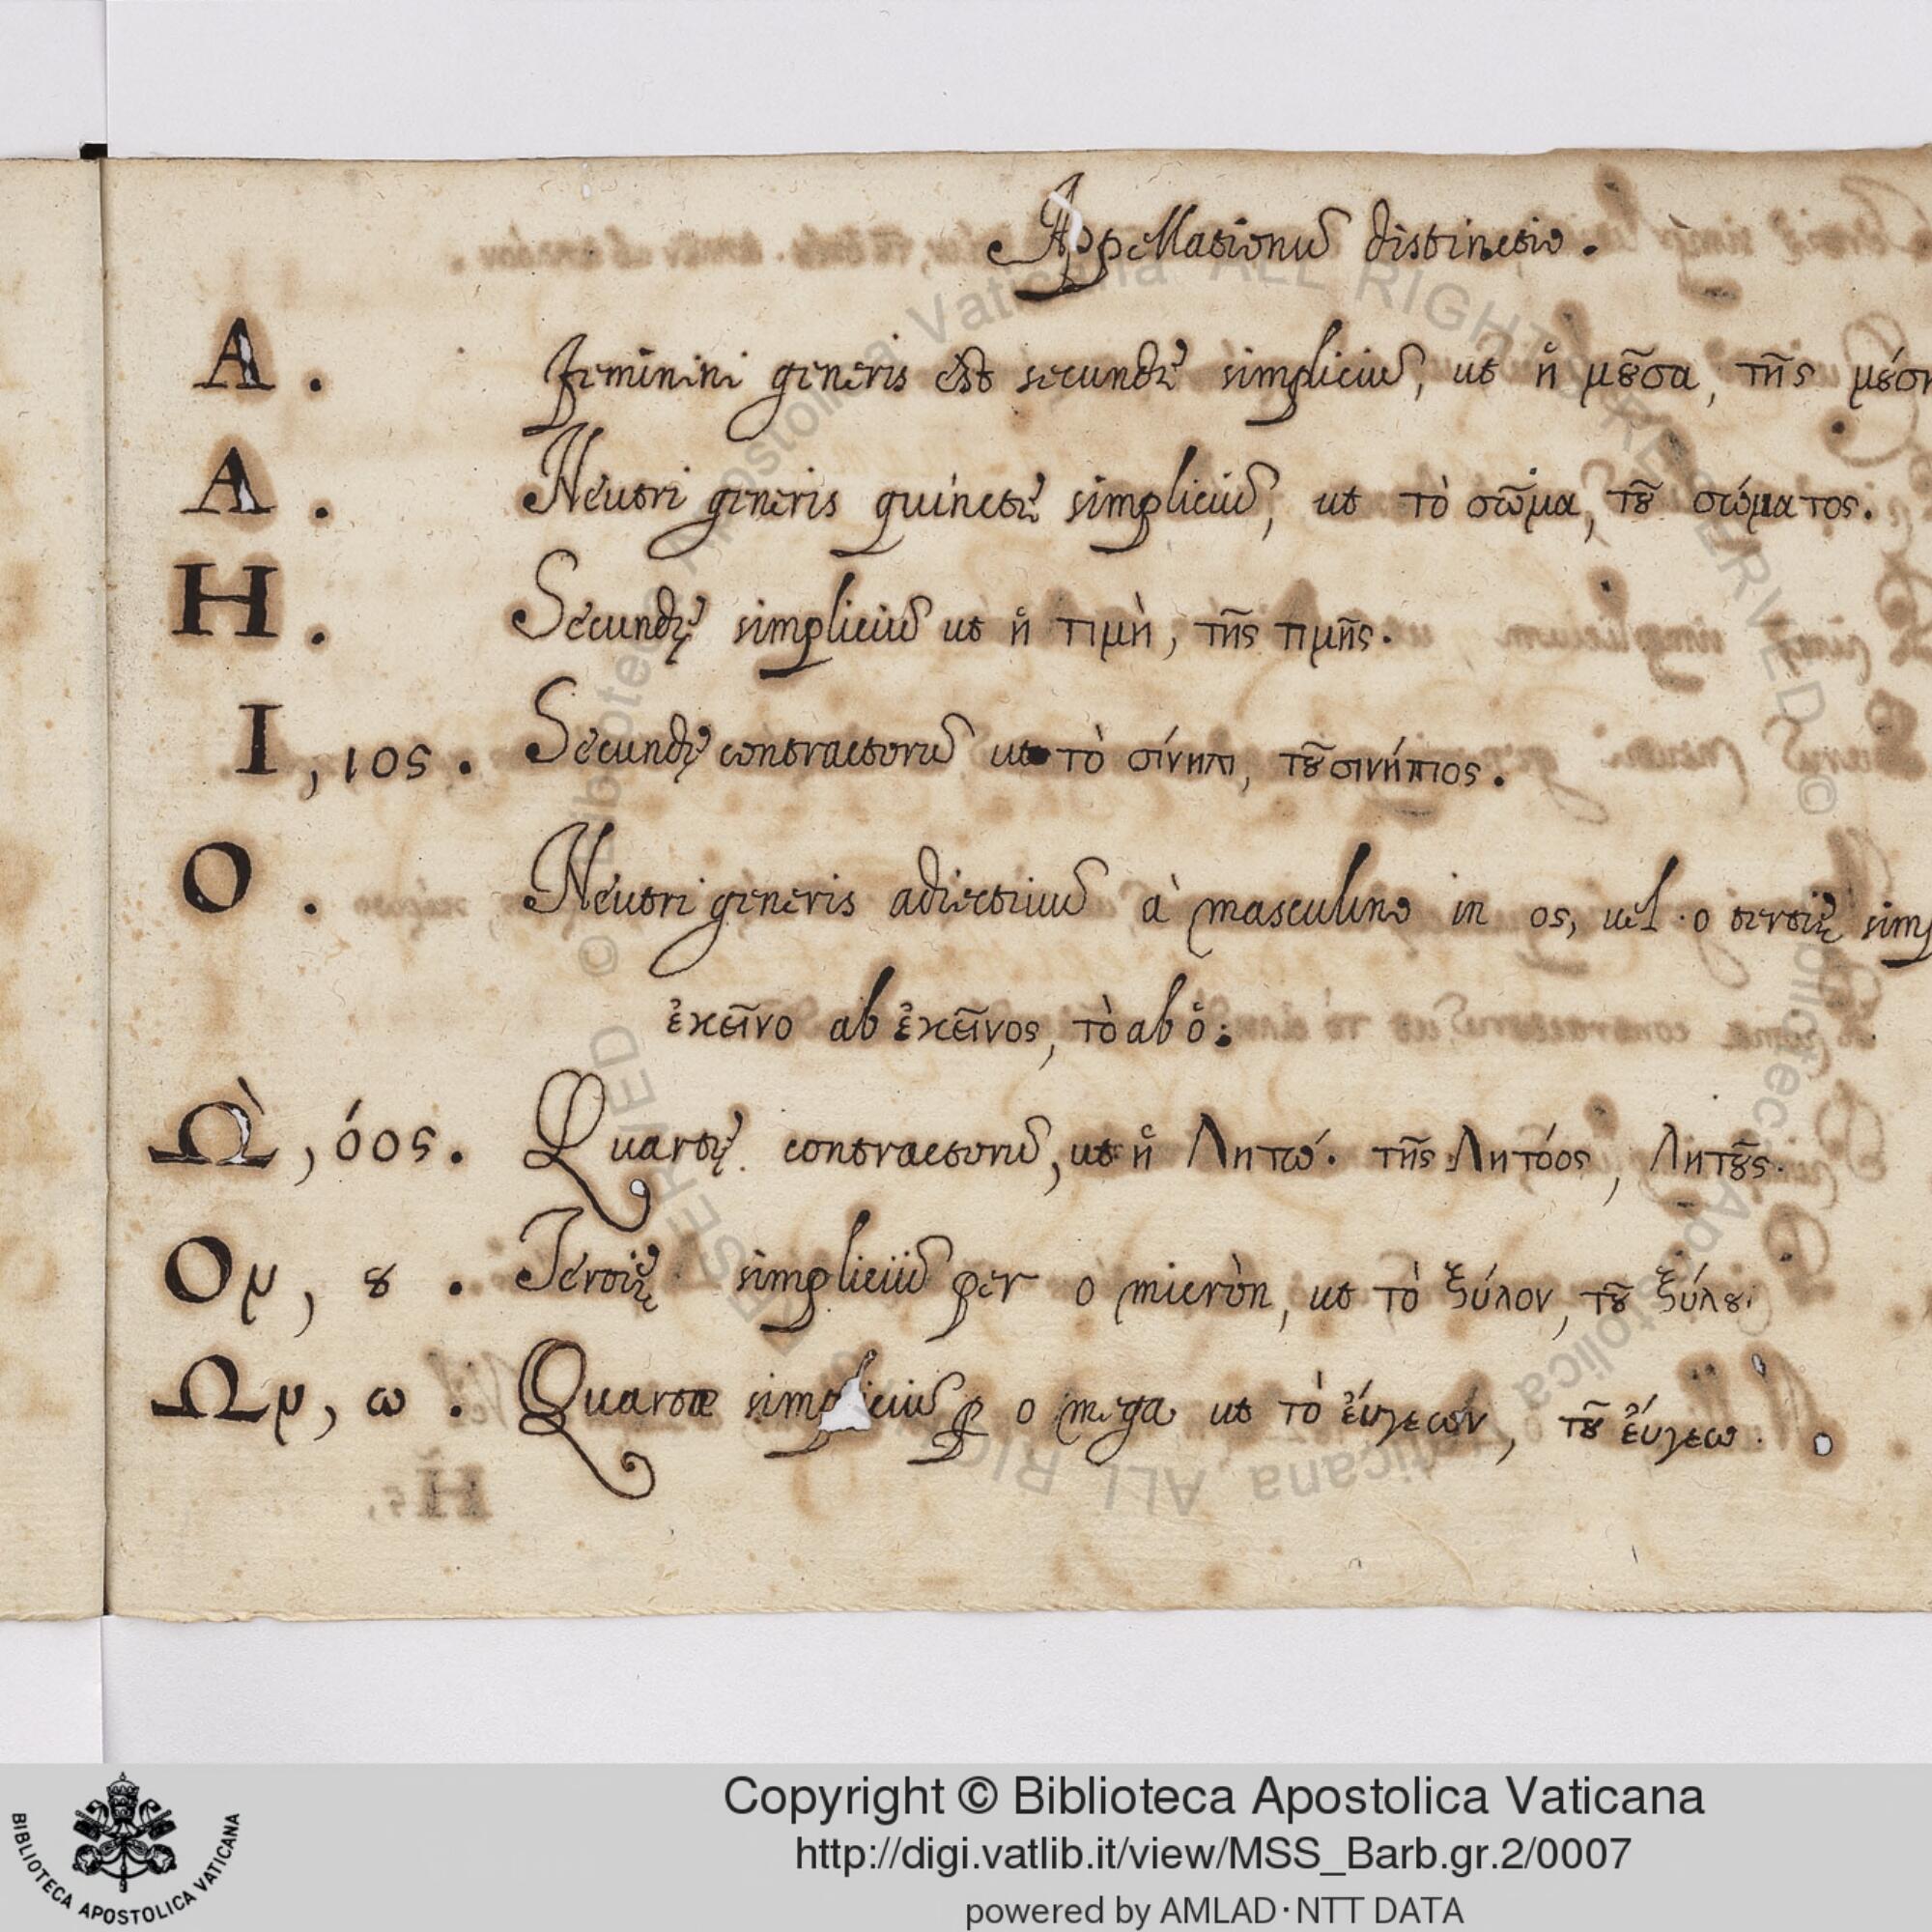 Appellationũ distinctio.
A. Feminini generis est secundę simpliciũ, ut ἡ μȣ̃σα, τῆς
A. Neutri generis quinctę simpliciũ, ut τὸ σῶμα, τȣ̃ σώματος.
H. Secundę simpliciũ ut ἡ τιμὴ, τῆς τιμῆς.
I, ιος. Secundę contractorũ ut τὸ σίνηπι, τȣ̃ σινήπιος.
O. Neutri generis adiectiuũ à masculino in ος, uel ·ο tertię
ἐκεῖνο ab ἐκεῖνος, τὸ ab ὁ:
Ὼ, όος. Quartę contractorũ, ut ἡ Λητώ. τῆς Λητόος, Λητȣ̃ς.
Oν, ȣ. Tertię simpliciũ per ο micròn, ut τὸ ξύλον, τȣ̃ ξύλȣ.
Ων, ω. Quartæ simpliciũ ꝑ ο mega ut τὸ ἐύγεων, τȣ̃ ἐύγεω.
Copyright © Biblioteca Apostolica Vaticana
http://digi.vatlib.it/view/MSS_Barb.gr.2/0007
powered by AMLAD·NTT DATA
BIBLIOTECA APOSTOLICA VATICANA
© Biblioteca Apostolica Vaticana ALL RIGHTS RESERVED
© Biblioteca Apostolica Vaticana ALL RIGHTS RESERVED